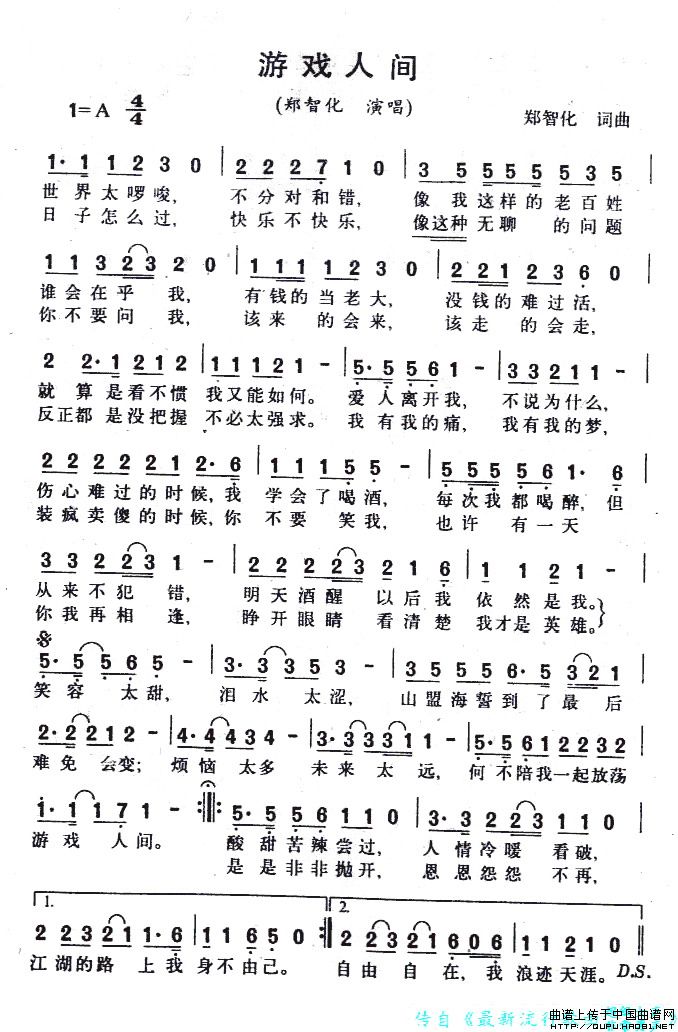 游戏人间
1=A 4/4
(郑智化 演唱)
郑智化 词曲
1· 1 1 2 3 0 | 2 2 2 2 7 1 0 | 3 5 5 5 5 5 5 3 5
世界太啰唆, 不分对和错, 像我这样的老百姓
日子怎么过, 快乐不快乐, 像这种无聊的问题
1 1 3 2 3 2 0 | 1 1 1 1 2 3 0 | 2 2 2 1 2 3 6 0
谁会在乎我, 有钱的当老大, 没钱的难过活,
你不要问我, 该来的会来, 该走的会走,
2 2· 1 2 1 2 | 1 1 1 2 1 - | 5· 5 5 6 1 - | 3 3 2 1 1 -
就算是看不惯 我又能如何。 爱人离开我, 不说为什么,
反正都是没把握 不必太强求。 我有我的痛, 我有我的梦,
2 2 2 2 2 2 2· 6 | 1 1 1 5 5 - | 5 5 5 5 6 1· 6
伤心难过的时候,我 学会了喝酒, 每次我都喝醉,但
装疯卖傻的时候,你 不要笑我, 也许有一天
3 3 2 2 3 1 - | 2 2 2 2 2 3 2 1 6 | 1 1 2 1 -
从来不犯错, 明天酒醒以后我 依然是我。
你我再相逢, 睁开眼睛看清楚 我才是英雄。
5· 5 5 6 5 - | 3· 3 3 5 3 - | 5 5 5 5 6· 5 3 2 1
笑容太甜, 泪水太涩, 山盟海誓到了最后
2· 2 2 1 2 - | 4· 4 4 3 4 - | 3· 3 3 3 1 - | 5· 5 6 1 2 2 3 2
难免会变; 烦恼太多 未来太远, 何不陪我一起放荡
1· 1 1 7 1 - :‖: 5· 5 5 6 1 1 0 | 3· 3 2 2 3 1 1 0
游戏人间。 酸甜苦辣尝过, 人情冷暖看破,
是是非非抛开, 恩恩怨怨不再,
1. 2.
2 2 3 2 1 1· 6 | 1 1 6 5 0 :‖ 2 2 3 2 1 6 0 6 | 1 1 2 1 0
江湖的路上我身不由己。 自由自在,我浪迹天涯。D.S.
曲谱上传于中国曲谱网
HTTP://WWW.QUPU123.NET